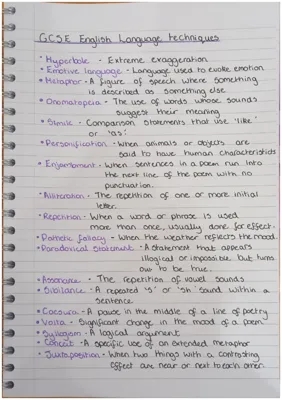 GCSE English Language techniques
• Hyperbole - Extreme exaggeration
• Emotive language - Language used to evoke emotion
• Metaphor - A figure of speech where something
is described as something else
• Onomatopeia - The use of words whose sounds
suggest their meaning
• Simile - Comparison statements that use 'like'
or 'as'.
• Personification - When animals or objects are
said to have human characteristics
• Enjambment - When sentences in a poem run into
the next line of the poem with no
punctuation.
• Alliteration - The repetition of one or more initial
letter.
• Repetition - When a word or phrase is used
more than once, usually done for effect.
• Pathetic fallacy - When the weather reflects the mood.
• Paradoxical Statement - A statement that appears
illogical or impossible but turns
out to be true.
• Assonance - The repetition of vowel sounds
• Sibilance - A repeated 's' or 'sh' sound within a
sentence
• Caesura - A pause in the middle of a line of poetry
• Volta - Significant change in the mood of a poem
• Syllogism - A logical argument
• Conceit - A specific use of an extended metaphor
• Juxtaposition - When two things with a contrasting
effect are near or next to each other.